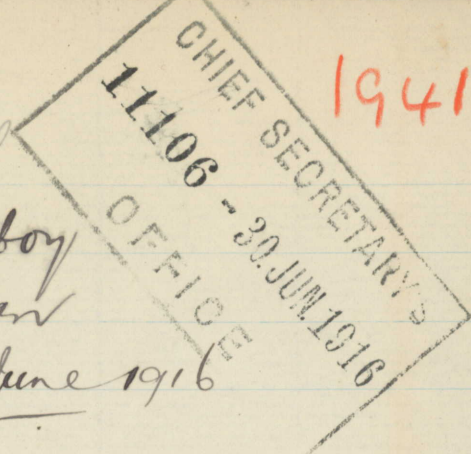 1941
CHIEF SECRETARY'S
11106 - 30.JUN.1916
OFFICE
boy
June 1916